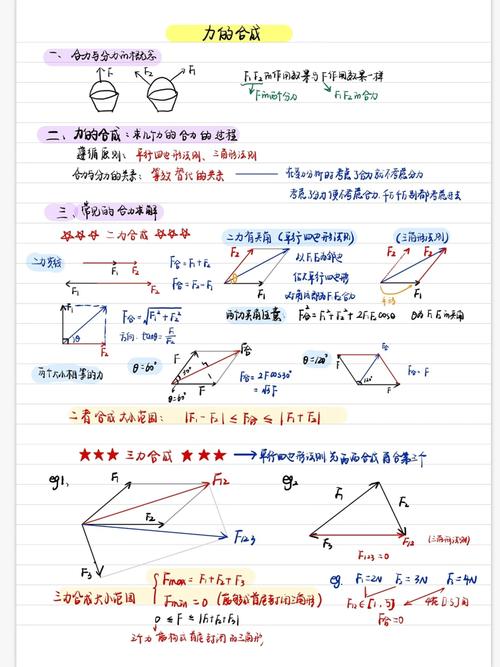 力的合成
一、合力与分力的概念
F F₂ F₁
F₁F₂的作用效果与F作用效果一样
F的两个分力 F₁F₂的合力
二、力的合成：求几个力的合力的过程
遵循原则：平行四边形法则、三角形法则
合力与分力的关系：等效替代的关系
在受力分析时考虑了合力就不考虑分力
考虑了分力就不考虑合力，千万别都考虑进去
三、常见的合力求解
二力合成
二力有夹角（平行四边形法则）
（三角形法则）
二力共线
F₁ F₂ F合=F₁+F₂
F₂ F₁ F合=F₂-F₁
F₂ F₁ θ
以F₁F₂为邻边
作平行四边形
对角线即为F₁F₂合力
F₂ F₁
平移
F₁ F₂ θ
F合=√F₁²+F₂²
方向：tanθ=F₁/F₂
两力夹角任意 F合²=F₁²+F₂²+2F₁F₂cosθ θ为F₁F₂的夹角
两个大小相等的力
θ=60° F F合 30° F θ=60°
F合=2Fcos30°
=√3F
θ=120° F F合 120° F F合=F
二者合成大小范围：|F₁-F₂|≤F合≤|F₁+F₂|
三力合成 平行四边形法则为两两合成再合第三个
eg1、 F₁ F₁₂ F₂ F₁₂₃ F₃
eg2 F₁ F₂ F₃ F₁₂
（三角形法则）
F₁₂₃=0
三力合成大小范围
Fmax=F₁+F₂+F₃
Fmin=0（能够成首尾封闭三角形）
0≤F≤|F₁+F₂+F₃|
三个力能构成首尾封闭的三角形
eg. F₁=2N F₂=3N F₃=4N
F₁₂∈[1,5] 4在[1,5]间
F合=0